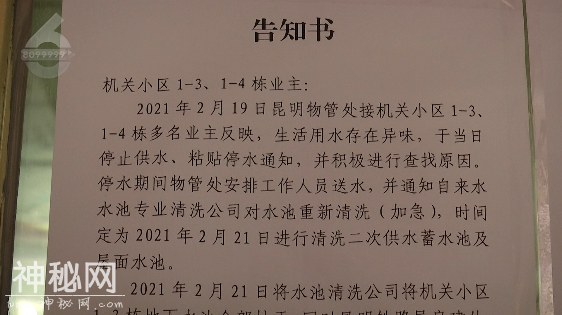 告知书
机关小区 1-3、1-4 栋业主：
2021 年 2 月 19 日昆明物管处接机关小区 1-3、
1-4 栋多名业主反映，生活用水存在异味，于当日
停止供水、粘贴停水通知，并积极进行查找原因。
停水期间物管处安排工作人员送水，并通知自来水
水池专业清洗公司对水池重新清洗（加急），时间
定为 2021 年 2 月 21 日进行清洗二次供水蓄水池及
层面水池。
2021 年 2 月 21 日将水池清洗公司将机关小区
神秘网